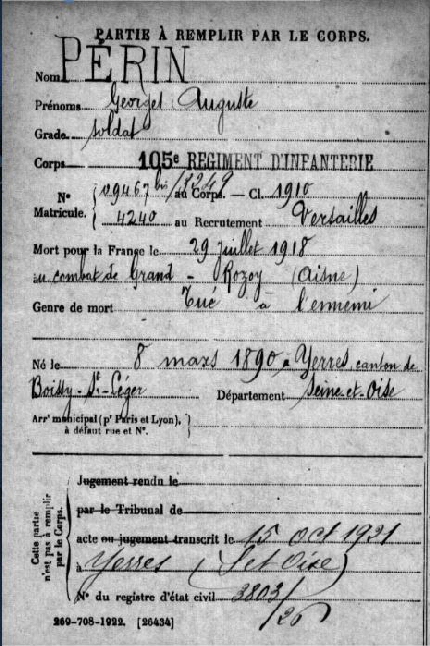 PARTIE À REMPLIR PAR LE CORPS.
Nom PÉRIN
Prénoms Georget Auguste
Grade soldat
Corps 105e REGIMENT D'INFANTERIE
N° 09467 bis / au Corps. — Cl. 1910
Matricule. 4240 au Recrutement Versailles
Mort pour la France le 29 juillet 1918
au combat de Grand - Rozoy (Aisne)
Genre de mort Tué à l'ennemi
Né le 8 mars 1890 à Yerres canton de
Boissy-St-Léger Département Seine-et-Oise
Arrt municipal (pr Paris et Lyon),
à défaut rue et N°.
Cette partie
n'est pas à remplir
par le Corps.
Jugement rendu le
par le Tribunal de
acte ou jugement transcrit le 15 oct 1921
à Yerres (S et Oise)
N° du registre d'état civil 3803/
26
260-708-1922. [26434]